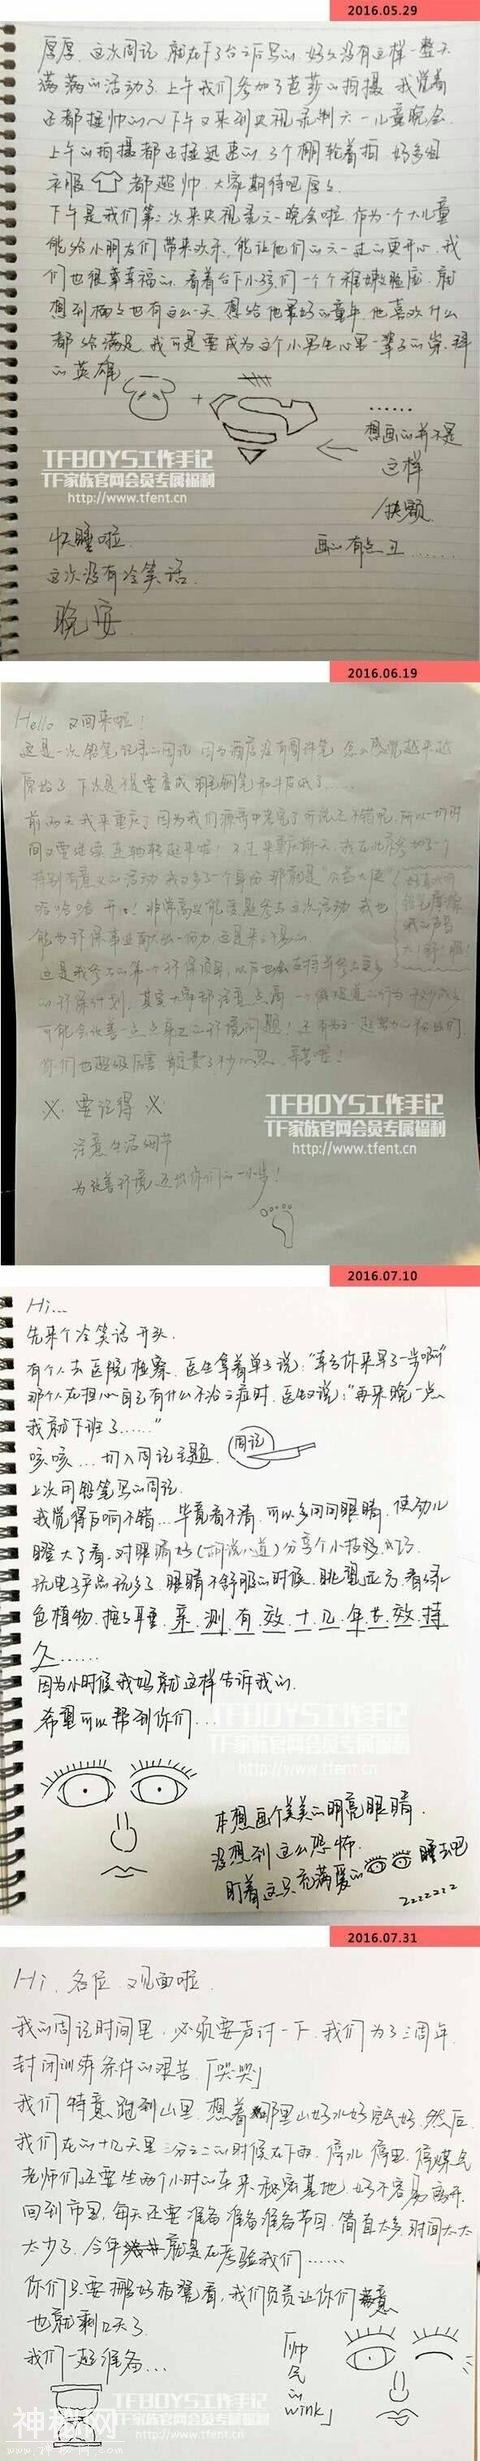 2016.05.29
厚厚,这次周记,就在下了台之后写的,好久没有这样一整天
满满的活动了,上午我们参加了芭莎的拍摄,我觉着
还都挺帅的~下午又来到央视录制六一儿童晚会.
上午的拍摄都还挺迅速的,3个棚轮着拍,好多组
衣服 都超帅,大家期待吧厚厚.
下午是我们第二次来央视录六一晚会啦,作为一个大儿童
能给小朋友们带来欢乐,能让他们的六一过的更开心,我
们也很幸幸福的.看着台下小孩们一个个稚嫩脸庞,就
想到楠楠也有这么一天,想给他最好的童年,他喜欢什么
都给满足,我可是要成为这个小男生心里一辈子的崇拜
的英雄
+
......
想画的并不是
这样
画的有点丑......
TFBOYS工作手记
TF家族官网会员专属福利
http://www.tfent.cn
快睡啦.
这次没有冷笑话.
晚安
2016.06.19
Hello 又回来啦!
这是一次铅笔记录的周记,因为酒店没有圆珠笔,怎么感觉越来越
原始了,下次是不是要变成羽毛钢笔和牛皮纸了......
前两天我来重庆了,因为我们
时
间又要继续连轴转起来啦!不过来重庆前天,我在北京参加了一个
特别有意义的活动,我又多了一个身份,那就是"公益大使"
哈哈哈 开心!非常高兴能受邀参与这次活动,我也
能为环保事业献出一份力,这是来之不易的
这是我参与的第一个环保项目,以后也会支持并参与更多
的环保计划,其实大家都注意点滴,
可能会改善一点点身边的环境问题!
你们也超级厉害 辛苦啦!
※ 要记得 ※
注意生活细节
为改善环境,迈出你们的一小步!
TFBOYS工作手记
TF家族官网会员专属福利
http://www.tfent.cn
2016.07.10
Hi...
先来个冷笑话开头.
有个人去医院检察,医生拿着单子说:"幸亏你来早了一步啊"
那个人在担心自己有什么不治之症时,医生又说:"再来晚一点
我就下班了......"
咳咳...切入周记主题. 周记
上次用铅笔写的周记.
我觉得反响不错...毕竟看不清,可以多用用眼睛,使劲儿
瞪大了看,对眼睛好(胡说八道)分享个小技巧
玩电子产品玩多了,眼睛不舒服的时候,眺望远方,看绿
色植物,捏耳垂,亲测有效十几年长效持
久......
因为小时候我妈就这样告诉我的.
希望可以帮到你们...
TFBOYS工作手记
TF家族官网会员专属福利
http://www.tfent.cn
本想画个美美的明亮眼睛.
没想到这么恐怖.
盯着这只充满爱的 睡去吧
zzzzzzz
2016.07.31
Hi,各位,又见面啦.
我的周记时间里,必须要声讨一下,我们为了三周年,
封闭训练条件的艰苦.「哭哭」
我们特意跑到山里,想着那里山好水好空气好,然后
我们在的十几天里三分之二的时候在下雨,停水 停电 停煤气
老师们还要坐两个小时的车来秘密基地,好不容易离开
回到市里,每天还要准备准备准备节目,简直太多,时间太太
太少了,今年就是在考验我们......
你们只要搬好板凳看,我们负责让你们满意
也就剩几天了
我们一起准备...
「帅气的wink」
TFBOYS工作手记
TF家族官网会员专属福利
http://www.tfent.cn
神秘网